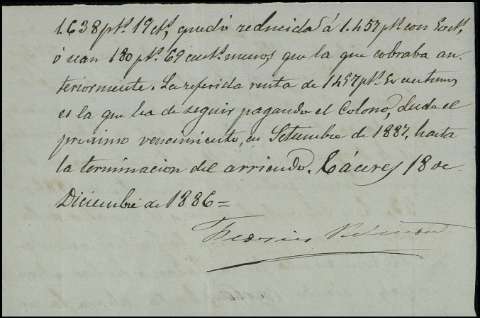 1.638 pts. 19 cts, quedó reducida á 1.457 pts con 50 cts,
ó sean 180 pts. 69 cents. menos que la que cobraba an-
teriormente. La referida renta de 1457 pts. 50 centimos
es la que ha de seguir pagando el Colono, desde el
procsimo vencimiento, en Setiembre de 1887, hasta
la terminacion del arriendo. Cáceres 18 de
Diciembre de 1886=